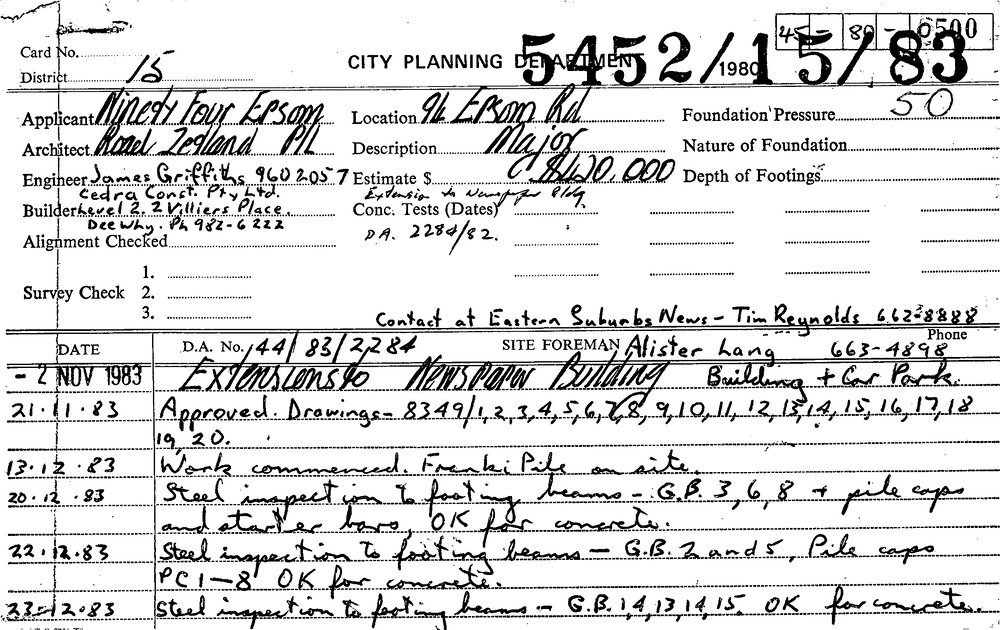 45 - 80 - 0500
Card No.
CITY PLANNING DEPARTMENT 5452/15/83
1980
District 15
Applicant Ninety Four Epsom Location 96 Epsom Rd Foundation Pressure 50
Architect Road Zetland P/L Description Major Nature of Foundation
Engineer James Griffiths 960 2057 Estimate $ C $420.000 Depth of Footings
Cedra Const. Pty Ltd. Extension to Newspaper Bldg.
Builder Level 2. 2 Villiers Place. Conc. Tests (Dates)
Dee Why. Ph 982-6222 D.A. 2284/82.
Alignment Checked
1.
Survey Check 2.
3.
Contact at Eastern Suburbs News - Tim Reynolds 662-8888
DATE D.A. No. 44/83/2284 SITE FOREMAN Alister Lang 663-4898 Phone
- 2 NOV 1983 Extensions to Newspaper Building Building + Car Park.
21.11.83 Approved. Drawings - 8349/1,2,3,4,5,6,7,8,9,10,11,12,13,14,15,16,17,18
19, 20.
13.12.83 Work commenced. Franki Pile on site.
20.12.83 Steel inspection to footing beams - G.B. 3,6,8 + pile caps
and starter bars, OK for concrete.
22.12.83 Steel inspection to footing beams - G.B. 2 and 5, Pile caps
PC1-8 OK for concrete.
23-12.83 Steel inspection to footing beams - G.B. 1,4,13,14,15. OK for concrete.